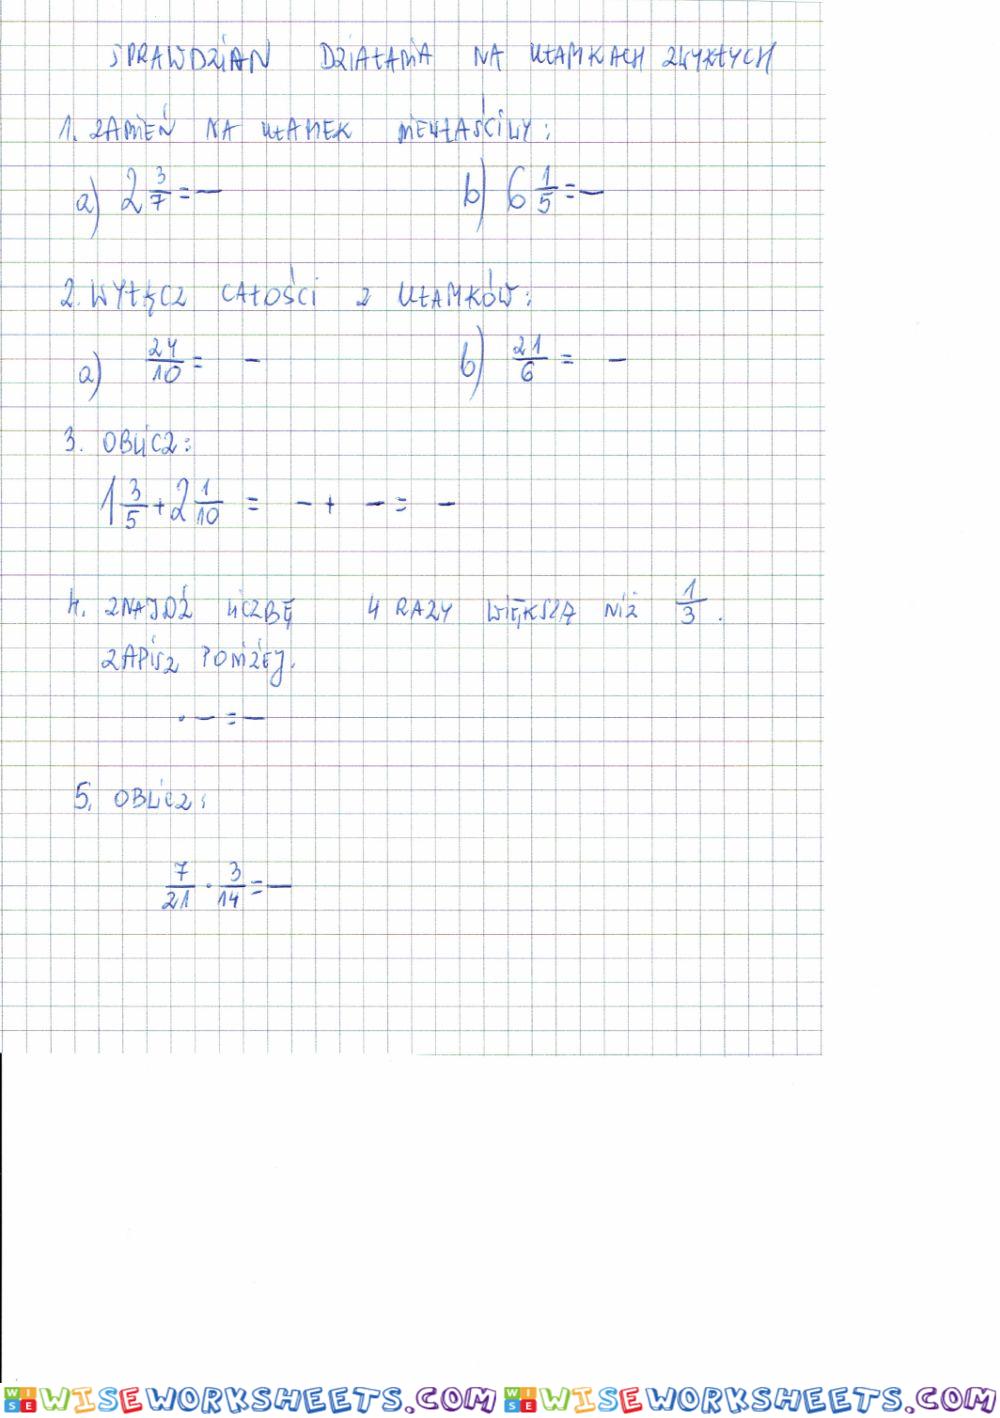 SPRAWDZIAN DZIAŁANIA NA UŁAMKACH ZWYKŁYCH
1. ZAMIEŃ NA UŁAMEK NIEWŁAŚCIWY:
a) 2 3/7 = — b) 6 1/5 = —
2. WYŁĄCZ CAŁOŚCI Z UŁAMKÓW:
a) 24/10 = — b) 21/6 = —
3. OBLICZ:
1 3/5 + 2 1/10 = — + — = —
4. ZNAJDŹ LICZBĘ 4 RAZY WIĘKSZĄ NIŻ 1/3.
ZAPISZ PONIŻEJ.
· — = —
5. OBLICZ:
7/21 · 3/14 = —
WISEWORKSHEETS.COM WISEWORKSHEETS.COM